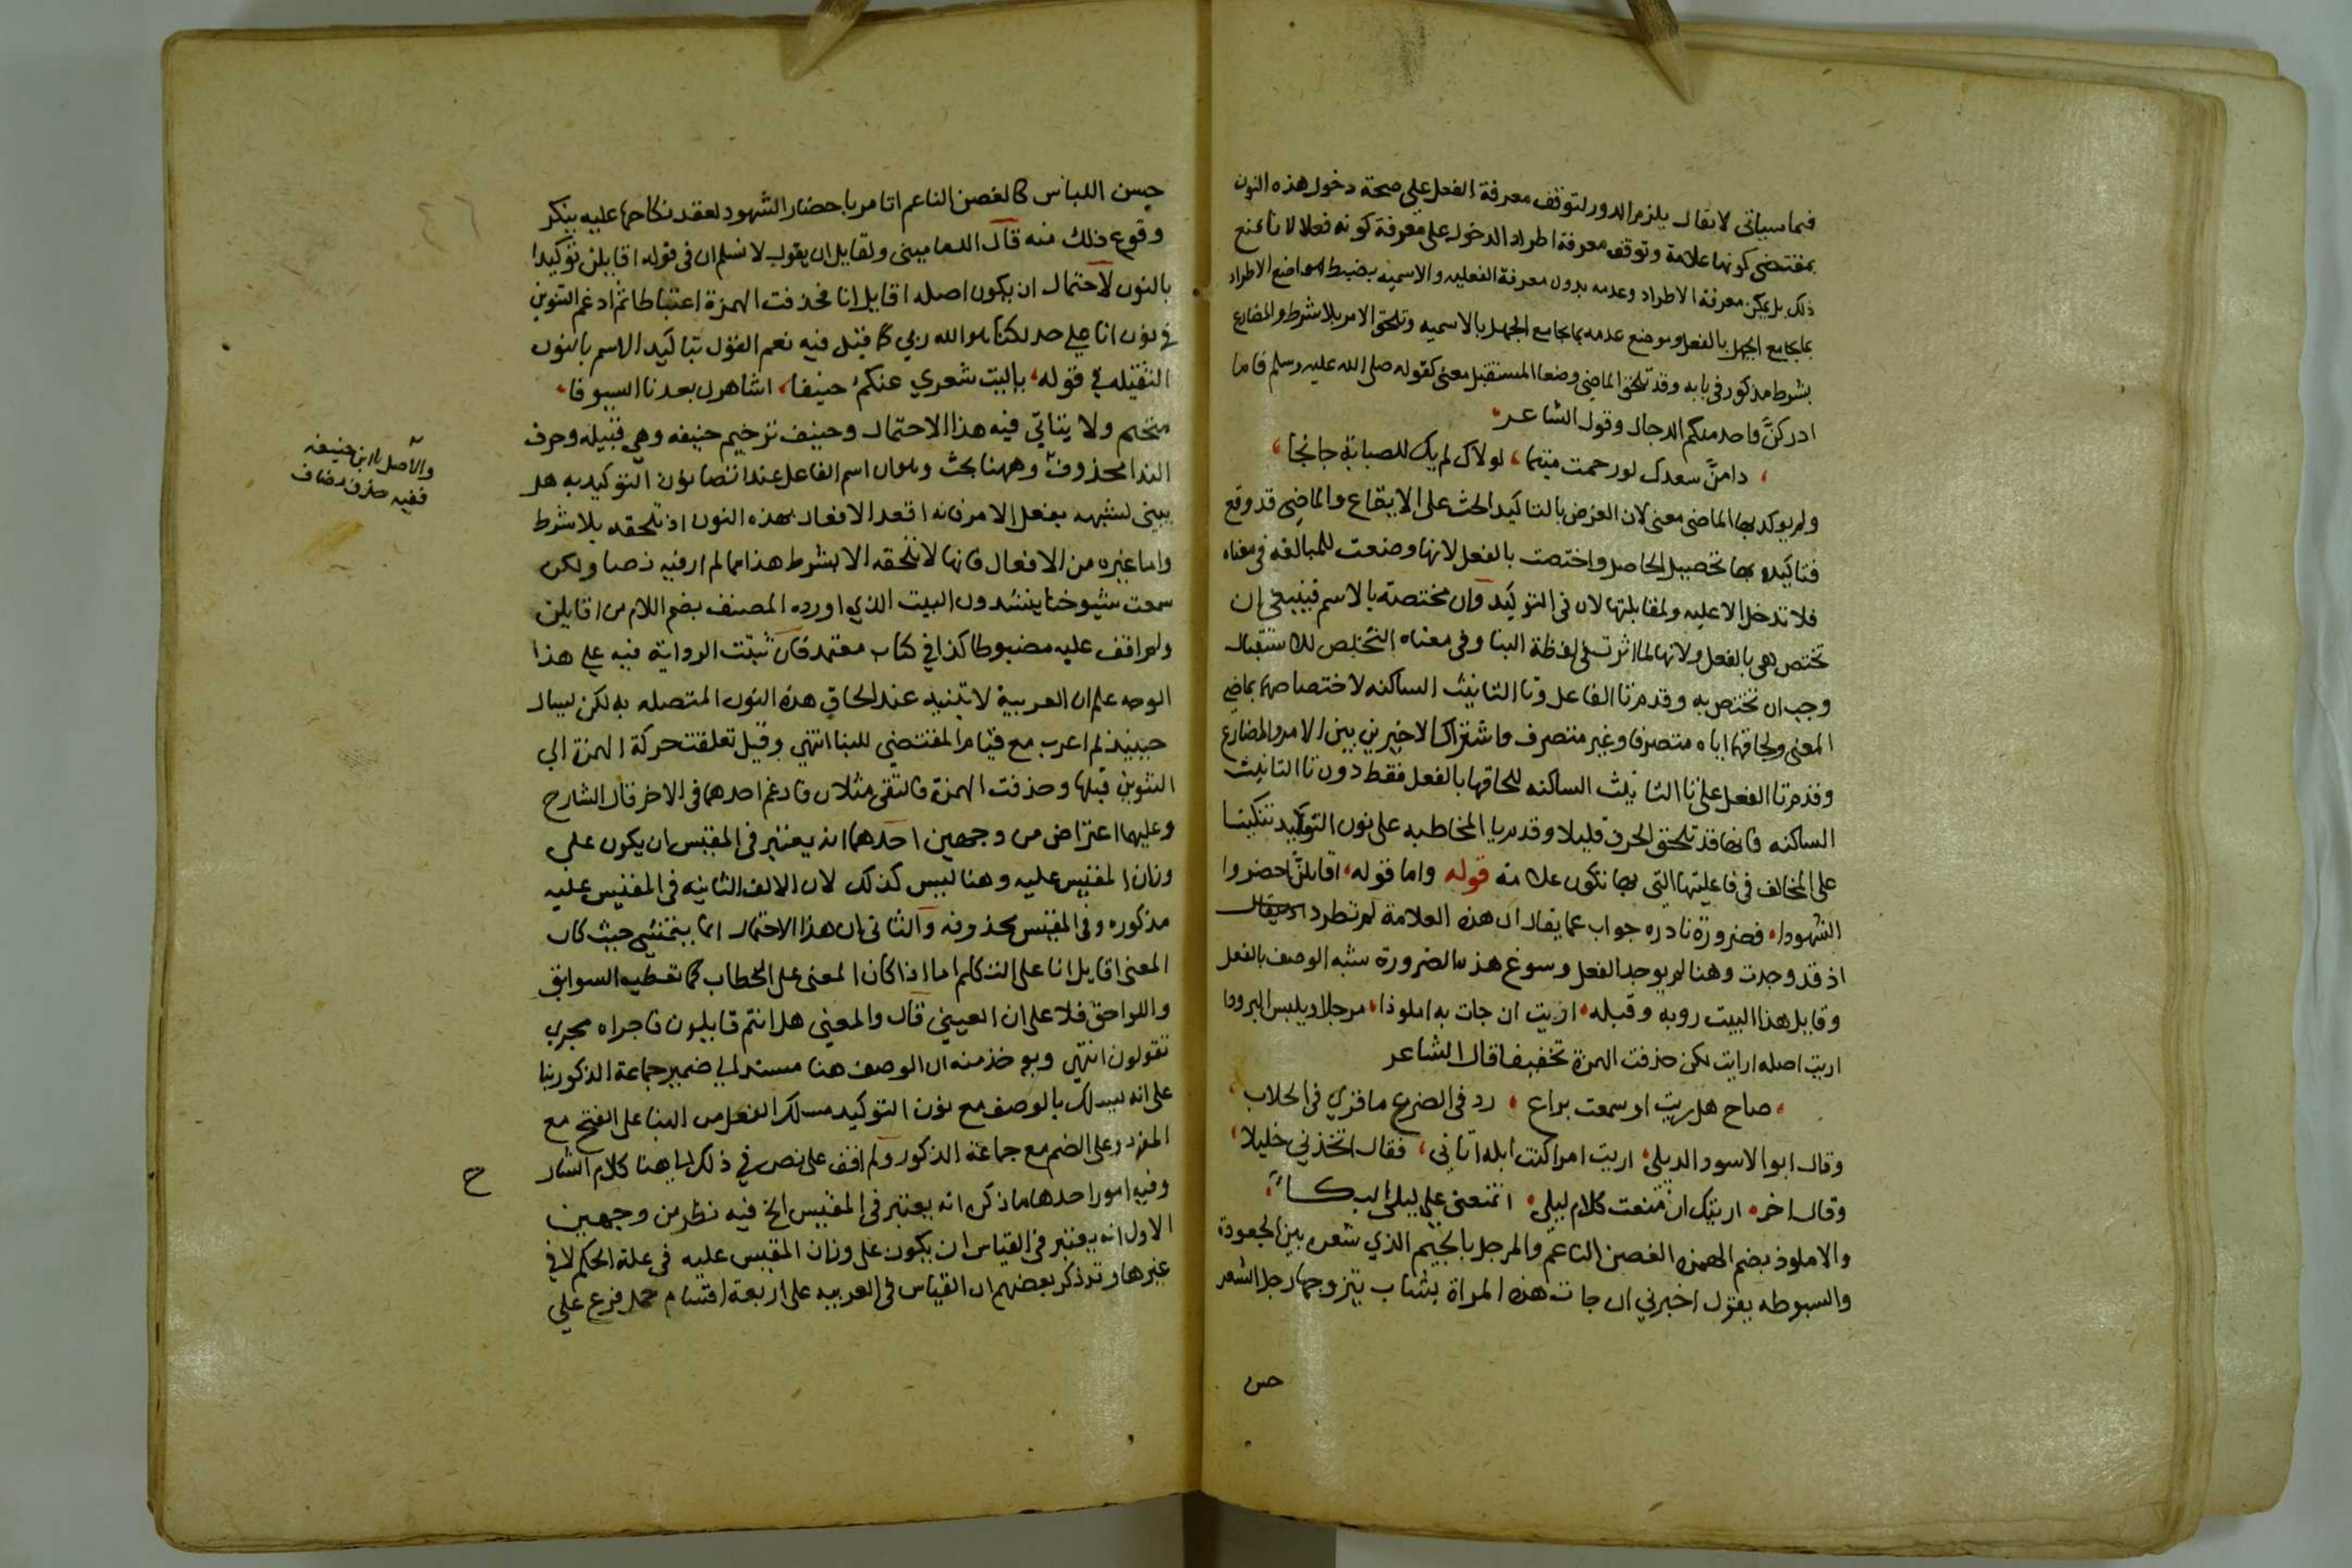 فيما سياتي لا يقال يلزم الدور لتوقف معرفة الفعل على صحة دخول هذه النون
بمقتضى كونها علامة وتوقف معرفة اطراد الدخول على معرفة كونه فعلا لانا نمنع
ذلك بل يمكن معرفة الاطراد وعدمه بدون معرفة الفعليه والاسميه بضبط مواضع الاطراد
بما يجامع الجهل بالفعل وموضع عدمه بما يجامع الجهل بالاسميه وتلحق الامر بلا شرط والمضارع
بشرط مذكور في بابه وقد تلحق الماضي وضعا المستقبل معنى كقوله صلى الله عليه وسلم فاما
ادركنَّ واحد منكم الدجال وقول الشاعر
دامنَّ سعدك لو رحمت متيما، لولاك لم يك للصبابة جانحا
ولم يوكد بها الماضي معنى لان الغرض بالتاكيد الحث على الايقاع والماضي قد وقع
فتاكيده بها تحصيل الحاصل واختصت بالفعل لانها وضعت للمبالغه في معناه
فلا تدخل الا عليه ولمقابلتها لان في التوكيد وان مختصة بالاسم فينبغي ان
تختص هي بالفعل ولانها لما اثرت في لفظة البنا وفي معناه التخلص للاستقبال
وجب ان تختص به وقدم تا الفاعل وتا التانيث الساكنه لاختصاصهما بماضي
المعنى ولحاقهما اياه متصرفا وغير متصرف واشتراك الاخيرين بين الامر والمضارع
وقدم تا الفعل على تا التانيث الساكنه للحاقها بالفعل فقط دون تا التانيث
الساكنه فانها قد تلحق الحرف قليلا وقدم يا المخاطبه على نون التوكيد تنكيتا
على المخالف في فاعليتها التي بها تكون علامة قوله واما قوله اقائلنَّ احضروا
الشهودا فضرورة نادره جواب عما يقال ان هذه العلامة لم تطرد
اذ قد وجدت وهنا لم يوجد الفعل وسوغ هذه الضرورة شبه الوصف بالفعل
وقايل هذا البيت روبه وقبله اريت ان جات به املودا مرجلا ويلبس البرودا
اريت اصله ارايت لكن حذفت الهمزة تخفيفا قال الشاعر
صاح هل ريت او سمعت براع رد في الضرع ما قري في الحلاب
وقال ابو الاسود الديلي اريت امرا كنت لم ابله اتاني، فقال اتخذني خليلا
وقال اخر اريتك ان منعت كلام ليلى اتمنعني على ليلى البكاء
والاملود بضم الهمزه الغصن الناعم والمرجل بالجيم الذي شعره بين الجعودة
والسبوطه يقول اخبرني ان جات هذه المراة بشاب يتزوجها رجل الشعر
حسن
حسن اللباس كالغصن الناعم اتامر باحضار الشهود لعقد نكاحها عليه ينكر
وقوع ذلك منه قال الدماميني ولقايل ان يقول لا نسلم ان في قوله اقايلن توكيدا
بالنون لاحتمال ان يكون اصله اقايل انا فحذفت الهمزة اعتباطا ثم ادغم التنوين
في نون انا على حد لكنا هو الله ربي كما قيل فيه نعم القول بتاكيد الاسم بالنون
الثقيله في قوله، ياليت شعري عنكم حنيفا، اشاهرن بعدنا السيوفا
متحتم ولا يتاتي فيه هذا الاحتمال وحنيف ترخيم حنيفه وهي قبيله وحرف
الندا محذوف وههنا بحث وهو ان اسم الفاعل عند اتصال نون التوكيد به هل
يبنى لشبهه بفعل الامر فانه اقعد الافعال بهذه النون اذ تلحقه بلا شرط
واما غيره من الافعال فانها لا تلحقه الا بشرط هذا مما لم ار فيه نصا ولكن
سمعت شيوخنا ينشدون البيت الذي اورده المصنف بضم اللام من اقايلن
ولم اقف عليه مضبوطا كذا في كتاب معتمد فان ثبتت الرواية فيه على هذا
الوجه علم ان العربية لا تبنيه عند الحاق هذه النون المتصله به لكن ليسال
حينيذ لم اعرب مع قيام المقتضي للبنا انتهي وقيل تعلقت حركة الهمزة الي
التنوين قبلها وحذفت الهمزة فالتقى مثلان فادغم احدهما في الاخر قال الشارح
وعليهما اعتراض من وجهين احدهما انه يعتبر في المقيس ان يكون على
وزان المقيس عليه وهنا ليس كذلك لان الالف الثانيه في المقيس عليه
مذكوره وفي المقيس محذوفه والثاني ان هذا الاحتمال انما يتمشي حيث كان
المعنى اقايل انا على التكلم اما اذا كان المعنى على الخطاب كما تعطيه السوابق
واللواحق فلا على ان العيني قال والمعنى هل انتم قايلون فاجراه مجرى
تقولون انتهي ويوخذ منه ان الوصف هنا مسند الي ضمير جماعة الذكور بنا
على انه يسلك بالوصف مع نون التوكيد مسلك الفعل من البنا على الفتح مع
المفرد وعلى الضم مع جماعة الذكور ولم اقف على نص في ذلك الي هنا كلام الشار
ح
وفيه امور احدها ما ذكره انه يعتبر في المقيس الخ فيه نظر من وجهين
الاول انه يعتبر في القياس ان يكون على وزان المقيس عليه في علة الحكم لا في
غيرها وقد ذكر بعضهم ان القياس في العربيه على اربعة اقسام حمل فرع على
والاصل يا ابن حنيفه
ففيه حذف مضاف